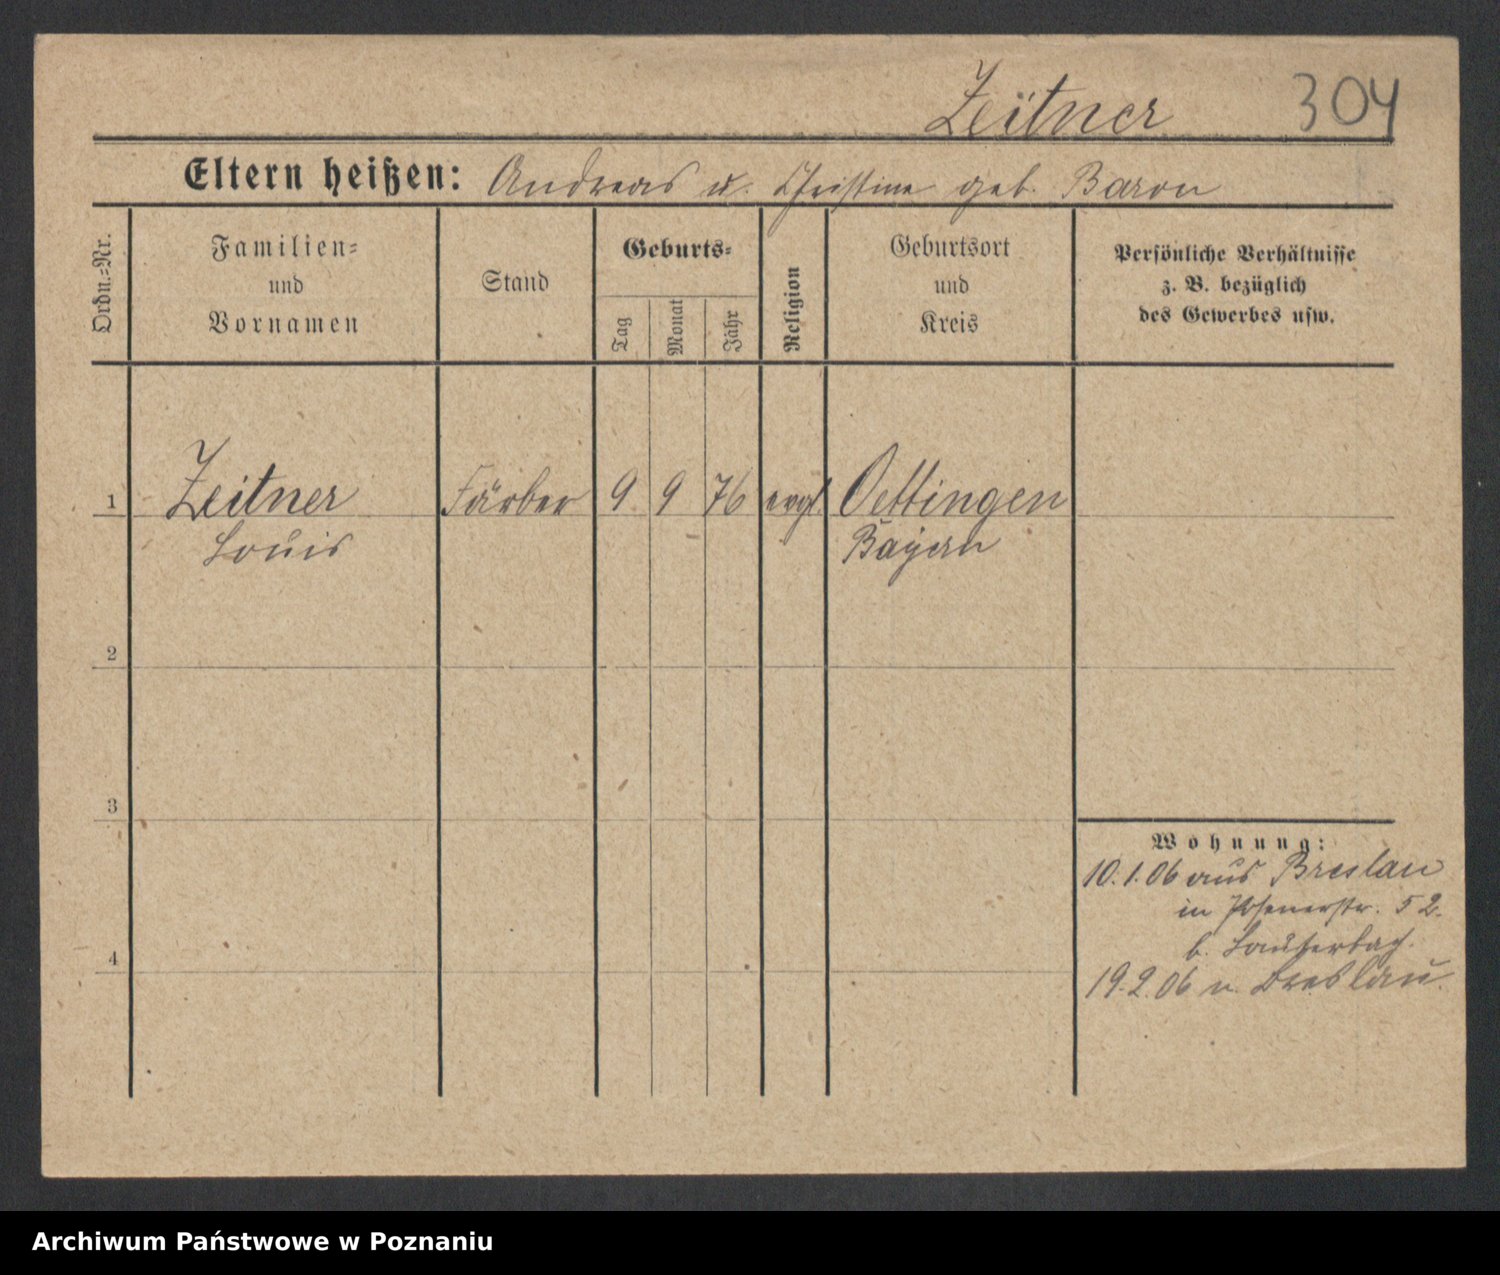 Zeitner 304
Eltern heißen: Andreas u. Christine geb. Baron
Ordn.=Nr.
Familien=
und
Vornamen
Stand
Geburts=
Tag
Monat
Jahr
Religion
Geburtsort
und
Kreis
Persönliche Verhältnisse
z. B. bezüglich
des Gewerbes usw.
1 Zeitner Färber 9 9 76 evgl. Oettingen
Louis Bayern
2
3
Wohnung:
10.1.06 aus Breslau
in Posenerstr. 52.
b. Lauterbach.
4
19.2.06 n. Breslau.
Archiwum Państwowe w Poznaniu